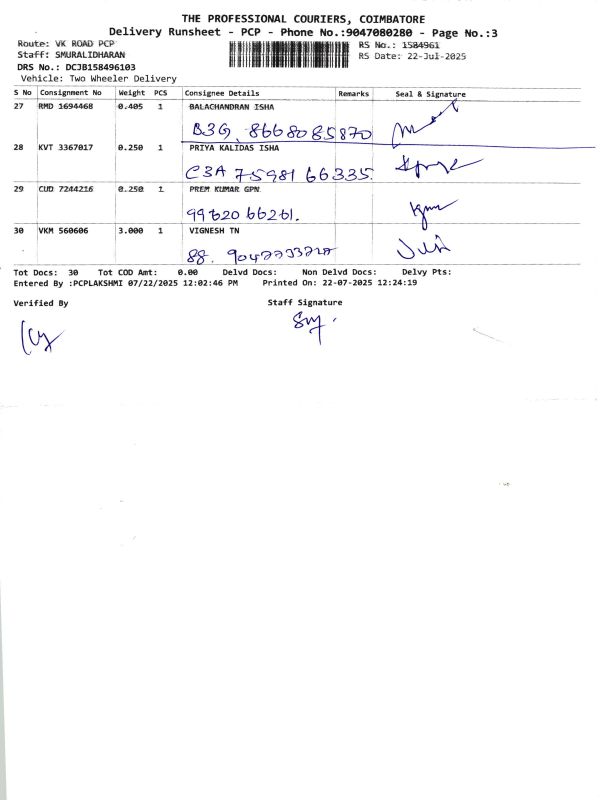 THE PROFESSIONAL COURIERS, COIMBATORE
Delivery Runsheet - PCP - Phone No.:9047080280 - Page No.:3
Route: VK ROAD PCP
RS No.: 1584961
Staff: SMURALIDHARAN
RS Date: 22-Jul-2025
DRS No.: DCJB158496103
Vehicle: Two Wheeler Delivery
S No Consignment No Weight PCS Consignee Details Remarks Seal & Signature
27 RMD 1694468 0.405 1 BALACHANDRAN ISHA
B3G, 8668085870
28 KVT 3367017 0.250 1 PRIYA KALIDAS ISHA
C3A 75981 66335.
29 CUD 7244216 0.250 1 PREM KUMAR GPN
99620 66261.
30 VKM 560606 3.000 1 VIGNESH TN
88.
Tot Docs: 30 Tot COD Amt: 0.00 Delvd Docs: Non Delvd Docs: Delvy Pts:
Entered By :PCPLAKSHMI 07/22/2025 12:02:46 PM Printed On: 22-07-2025 12:24:19
Verified By Staff Signature